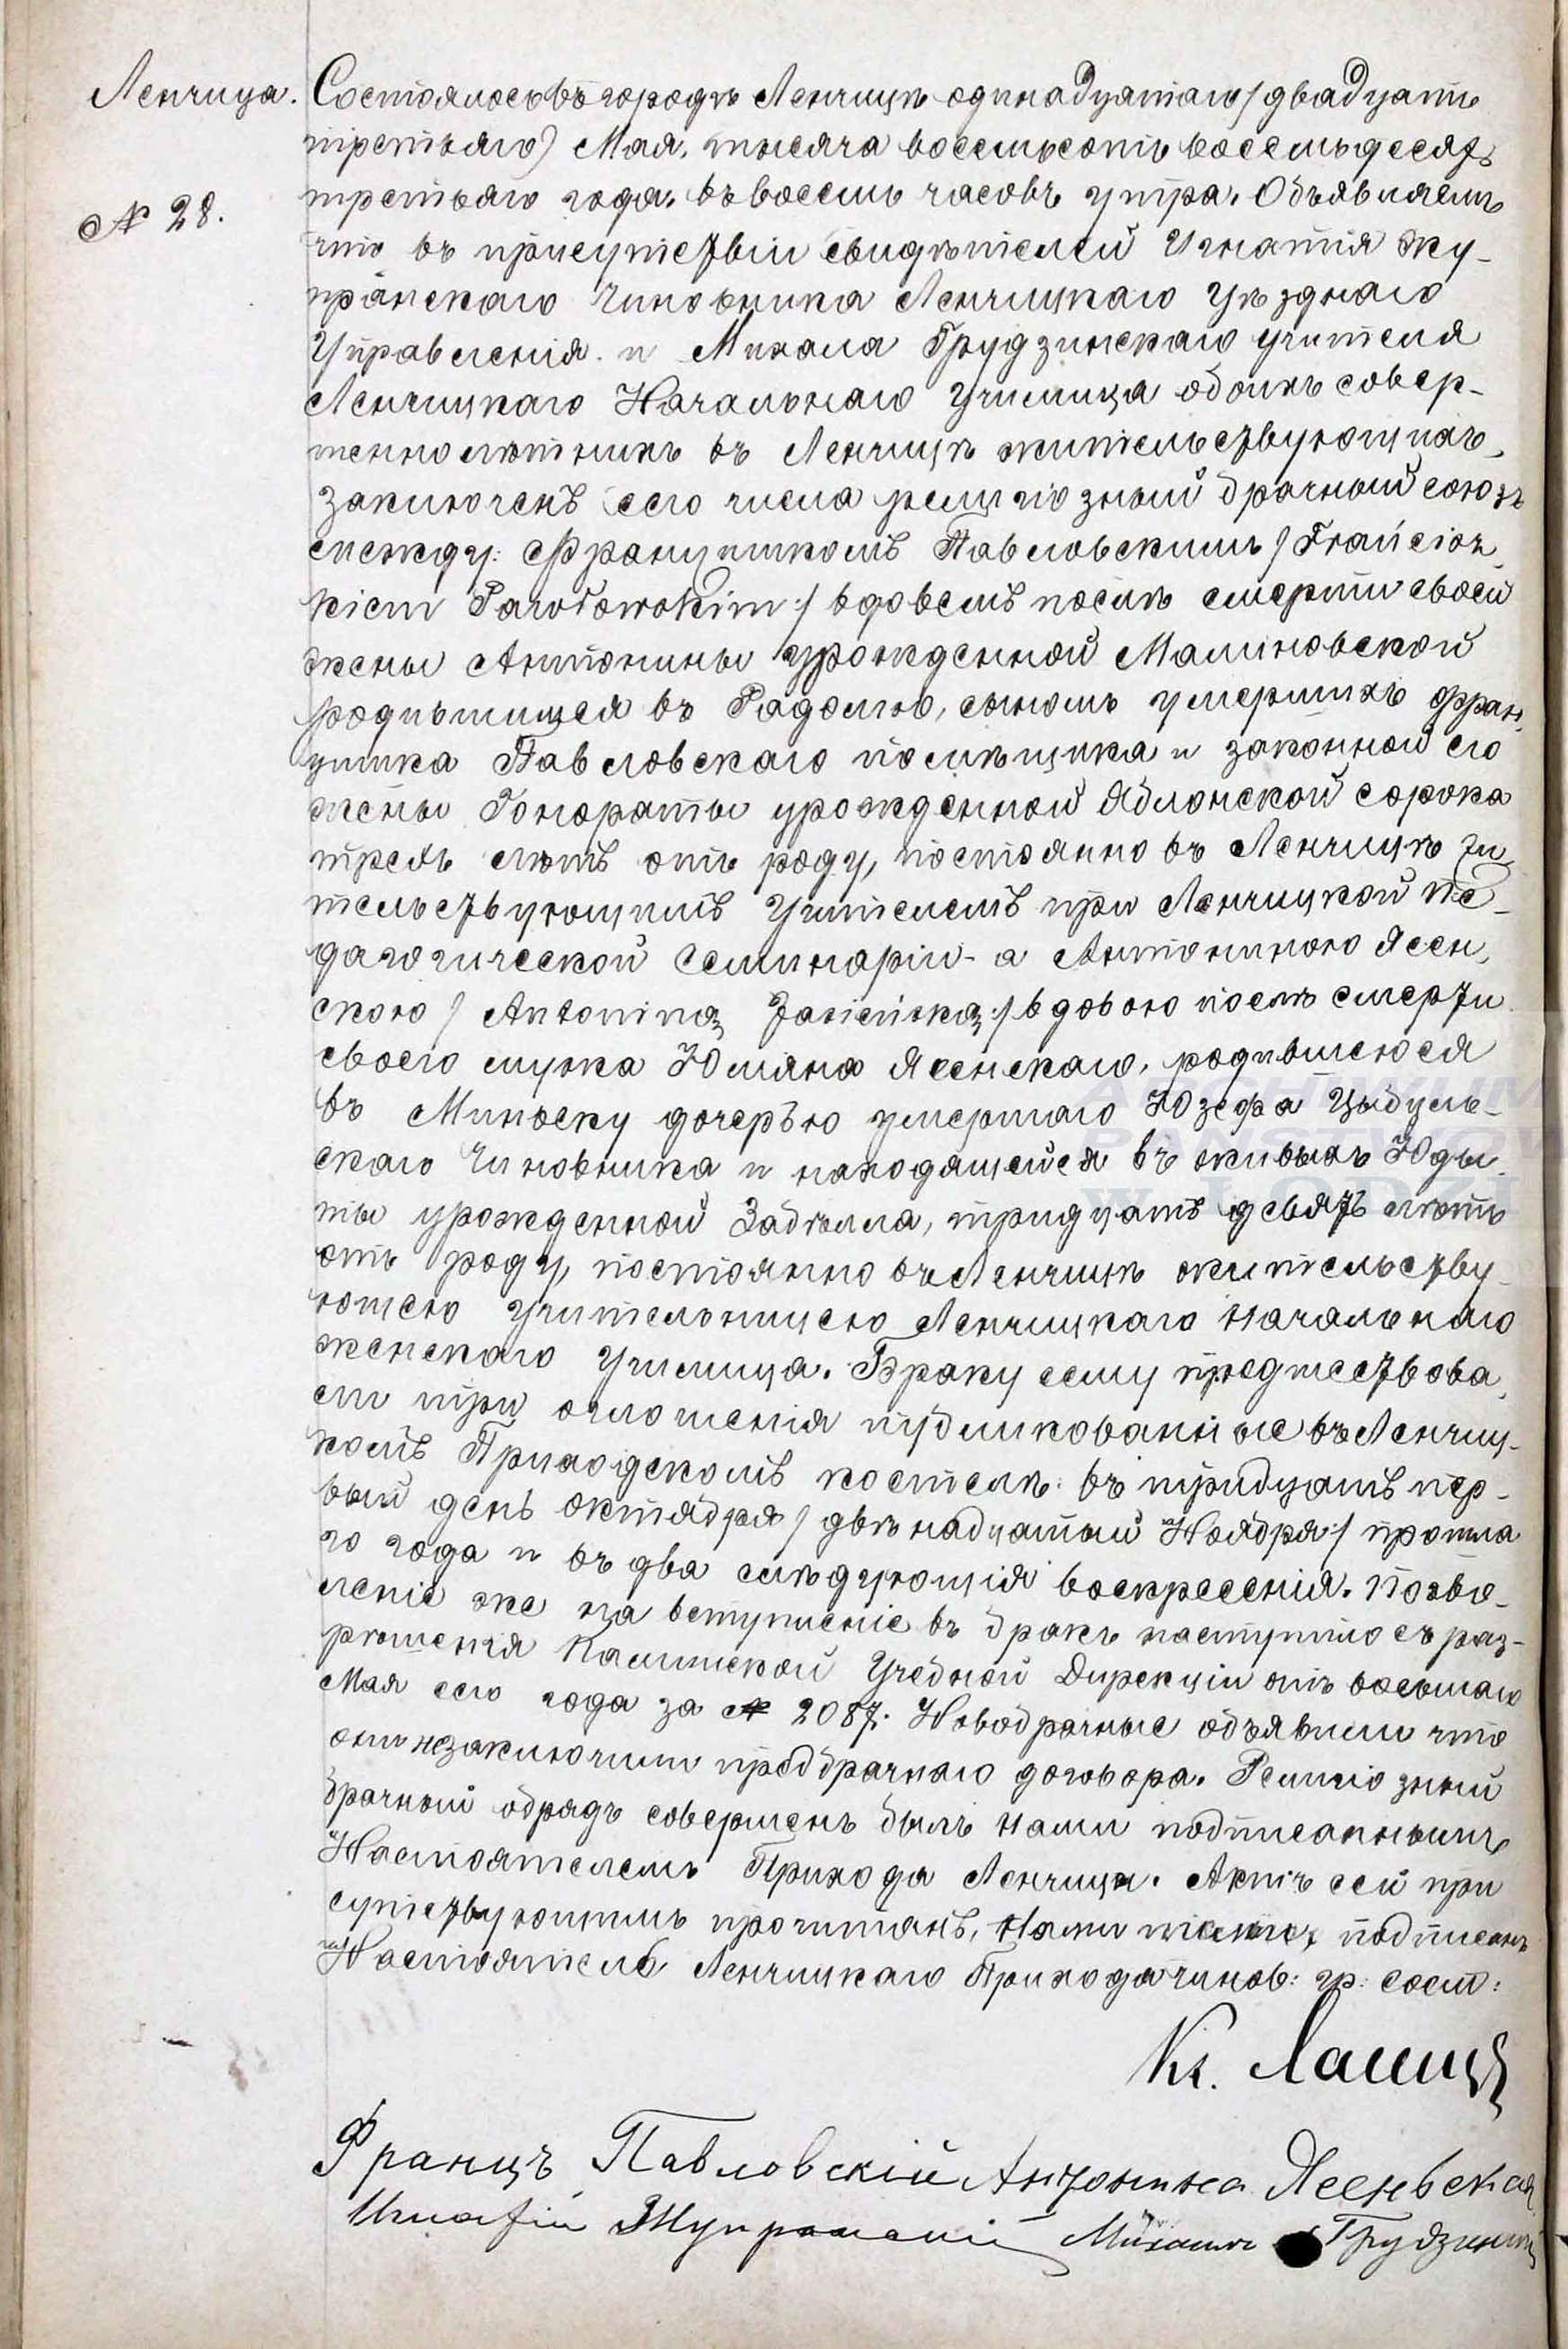 Ленчица.
№ 28.
Состоялось въ городѣ Ленчицѣ одинадцатаго / двадцать
третьяго) Мая, тысяча восемьсотъ восемьдесятъ
третьяго года, въ восемь часовъ утра. Объявляемъ
что въ присутствіи свидѣтелей Игнатія Жу-
пранскаго Чиновника Ленчицкаго Уѣзднаго
Управленія и Михала Грудзинскаго учителя
Ленчицкаго Начальнаго Училища обоихъ совер-
шеннолѣтнихъ въ Ленчицѣ жительствующихъ,
заключенъ сего числа религіозный брачный союзъ
между: Францишкомъ Павловскимъ / Francisz-
kiem Pawłowskim / вдовемъ послѣ смерти своей
жены Антонины урожденной Малиновской
родившимся въ Радомѣ, сыномъ умершихъ Фран-
цишка Павловскаго помѣщика и законной его
жены Гонораты урожденной Яблонской сорока
трехъ лѣтъ отъ роду, постоянно въ Ленчицѣ жи-
тельствующимъ Учителемъ при Ленчицкой Пе-
дагогической Семинаріи - а Антониною Ясен-
скою / Antoniną Jasieńską / вдовою послѣ смерти
своего мужа Юліяна Ясенскаго, родившеюся
въ Миньску дочерью умершаго Юзефа Цыбуль-
скаго Чиновника и находящейся въ живыхъ Юды-
ты урожденной Забѣлла, тридцать девять лѣтъ
отъ роду, постоянно въ Ленчицѣ жительству-
ющею Учительницею Ленчицкаго Начальнаго
женскаго Училища. Браку сему предшествова-
ли три оглошенія публикованные въ Ленчиц-
комъ Приходскомъ костелѣ: въ тридцать пер-
вый день Октября / двѣнадцатый Ноября / прошла
го года и въ два слѣдующія воскресенія. Позво-
леніе же на вступленіе въ бракъ наступило съ раз-
рѣшенія Калишской Учебной Дирекціи отъ восьмаго
Мая сего года за № 2087. Новобрачные объявили что
они незаключили предбрачнаго договора. Религіозный
брачный обрядъ совершенъ былъ нами подписаннымъ
Настоятелемъ Прихода Ленчица. Актъ сей при
сутствующимъ прочитанъ, Нами также подписанъ
Настоятель Ленчицкаго Прихода чинов: гр: сост:
Кс.
Францъ Павловскій Антонина Ясеньская
Игнатій Жупранскій Михаилъ Грудзинскій
ARCHIWUM
PAŃSTWOW
W ŁODZI